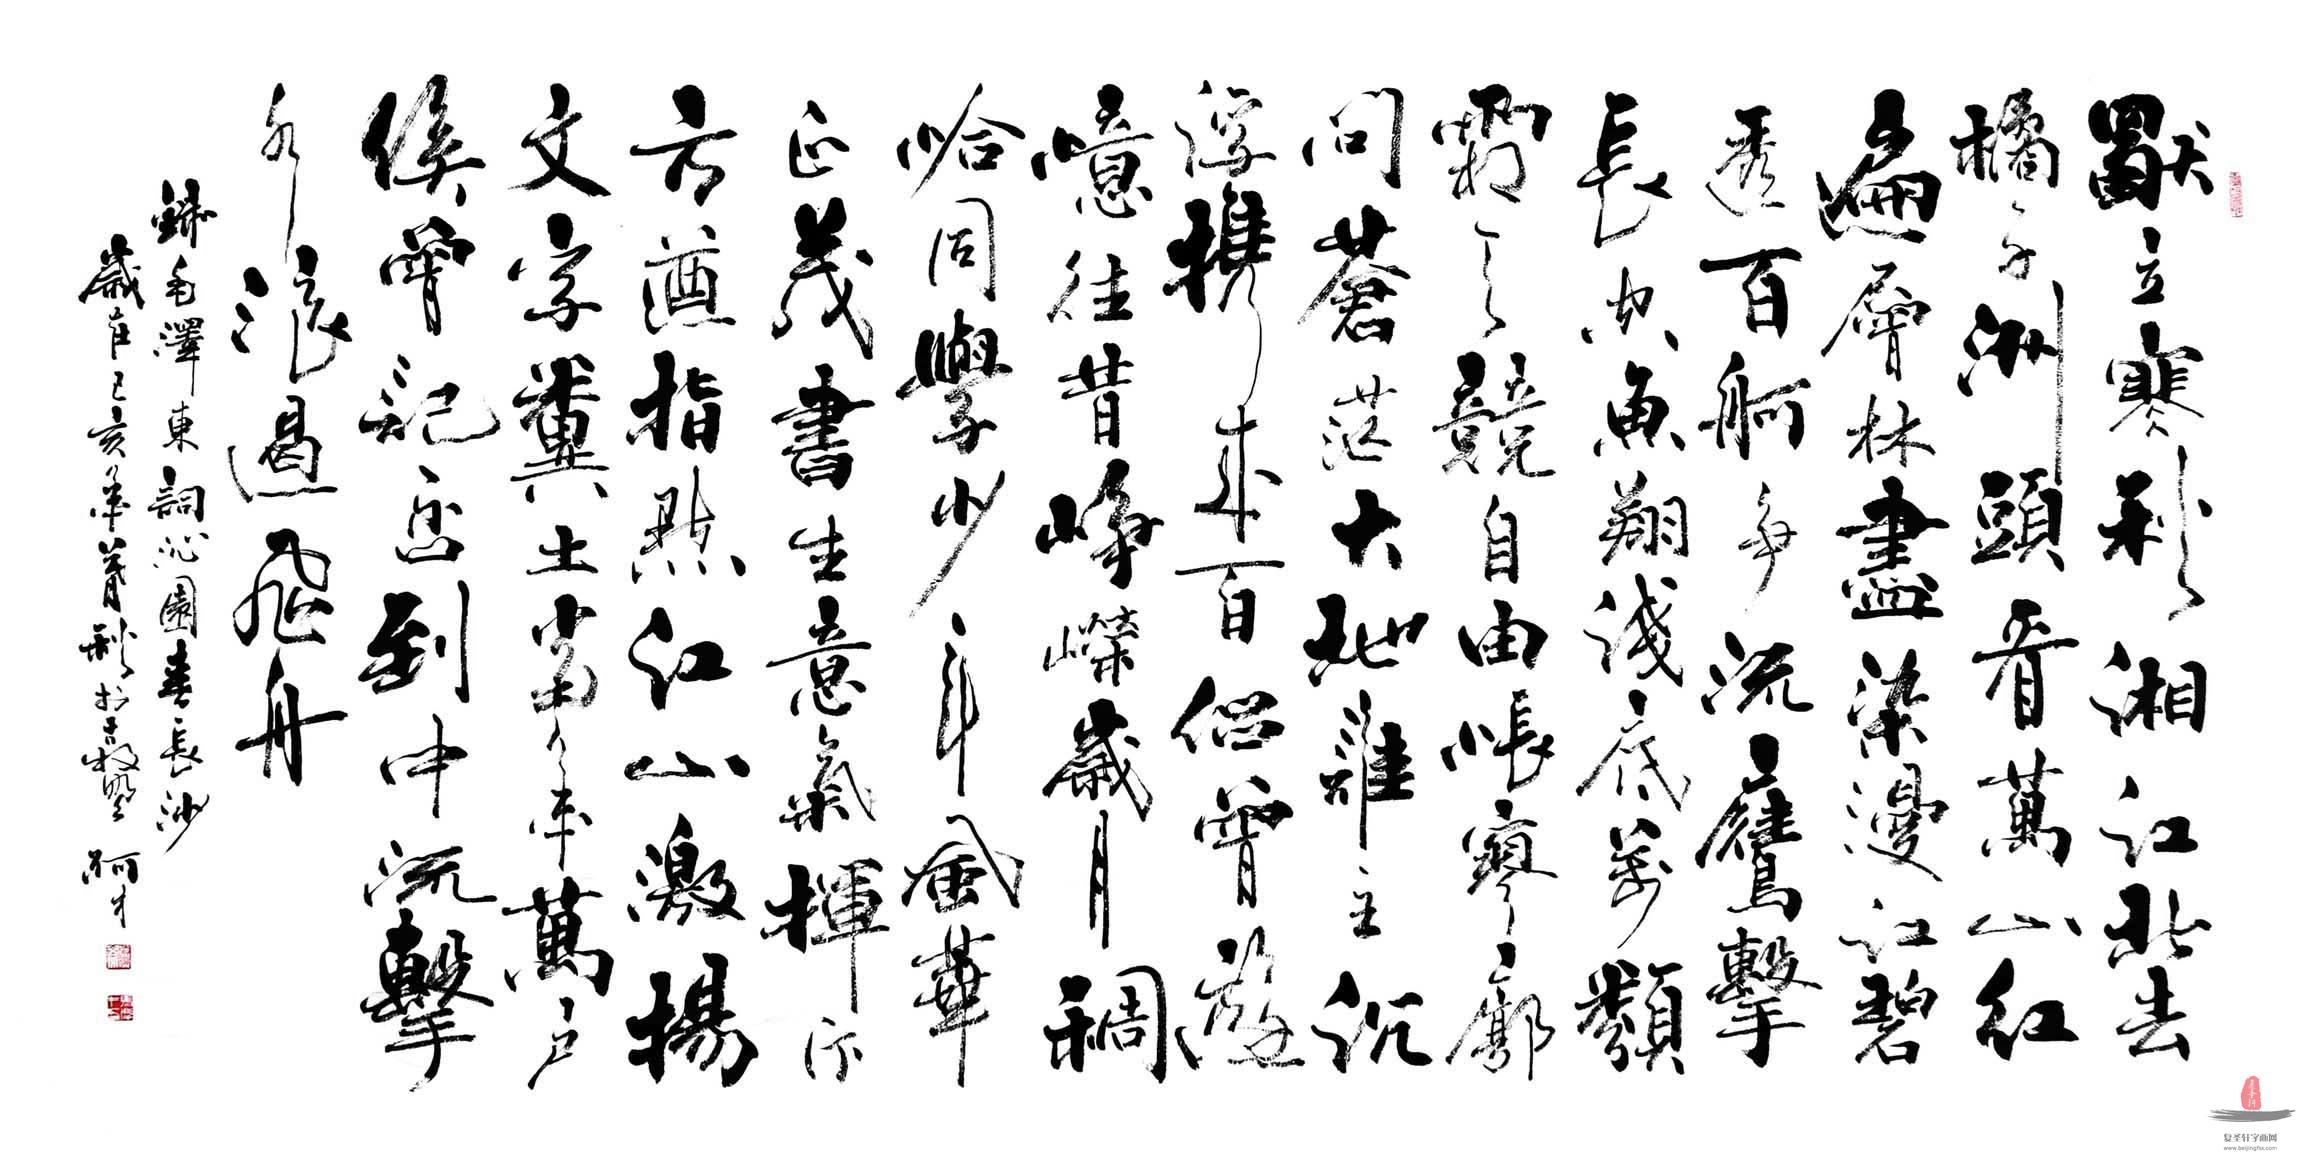 獨立寒秋湘江北去
橘子洲頭看萬山紅
遍層林盡染漫江碧
透百舸爭流鷹擊
長空魚翔淺底萬類
霜天競自由悵寥廓
問蒼茫大地誰主沉
浮攜來百侶曾遊
憶往昔崢嶸歲月稠
恰同學少年風華
正茂書生意氣揮斥
方遒指點江山激揚
文字糞土當年萬户
侯曾記否到中流擊
水浪遏飛舟
錄毛澤東詞沁園春長沙
歲在己亥年暮秋於
复圣轩字画网
www.beijingfsx.com